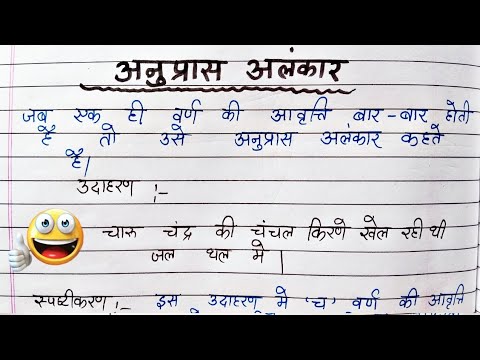 अनुप्रास अलंकार
जब एक ही वर्ण की आवृत्ति बार-बार होती
है तो उसे अनुप्रास अलंकार कहते
है।
उदाहरण :-
चारू चंद्र की चंचल किरणे खेल रही थी
जल थल मे।
स्पष्टीकरण :- इस उदाहरण मे 'च' वर्ण की आवृत्ति